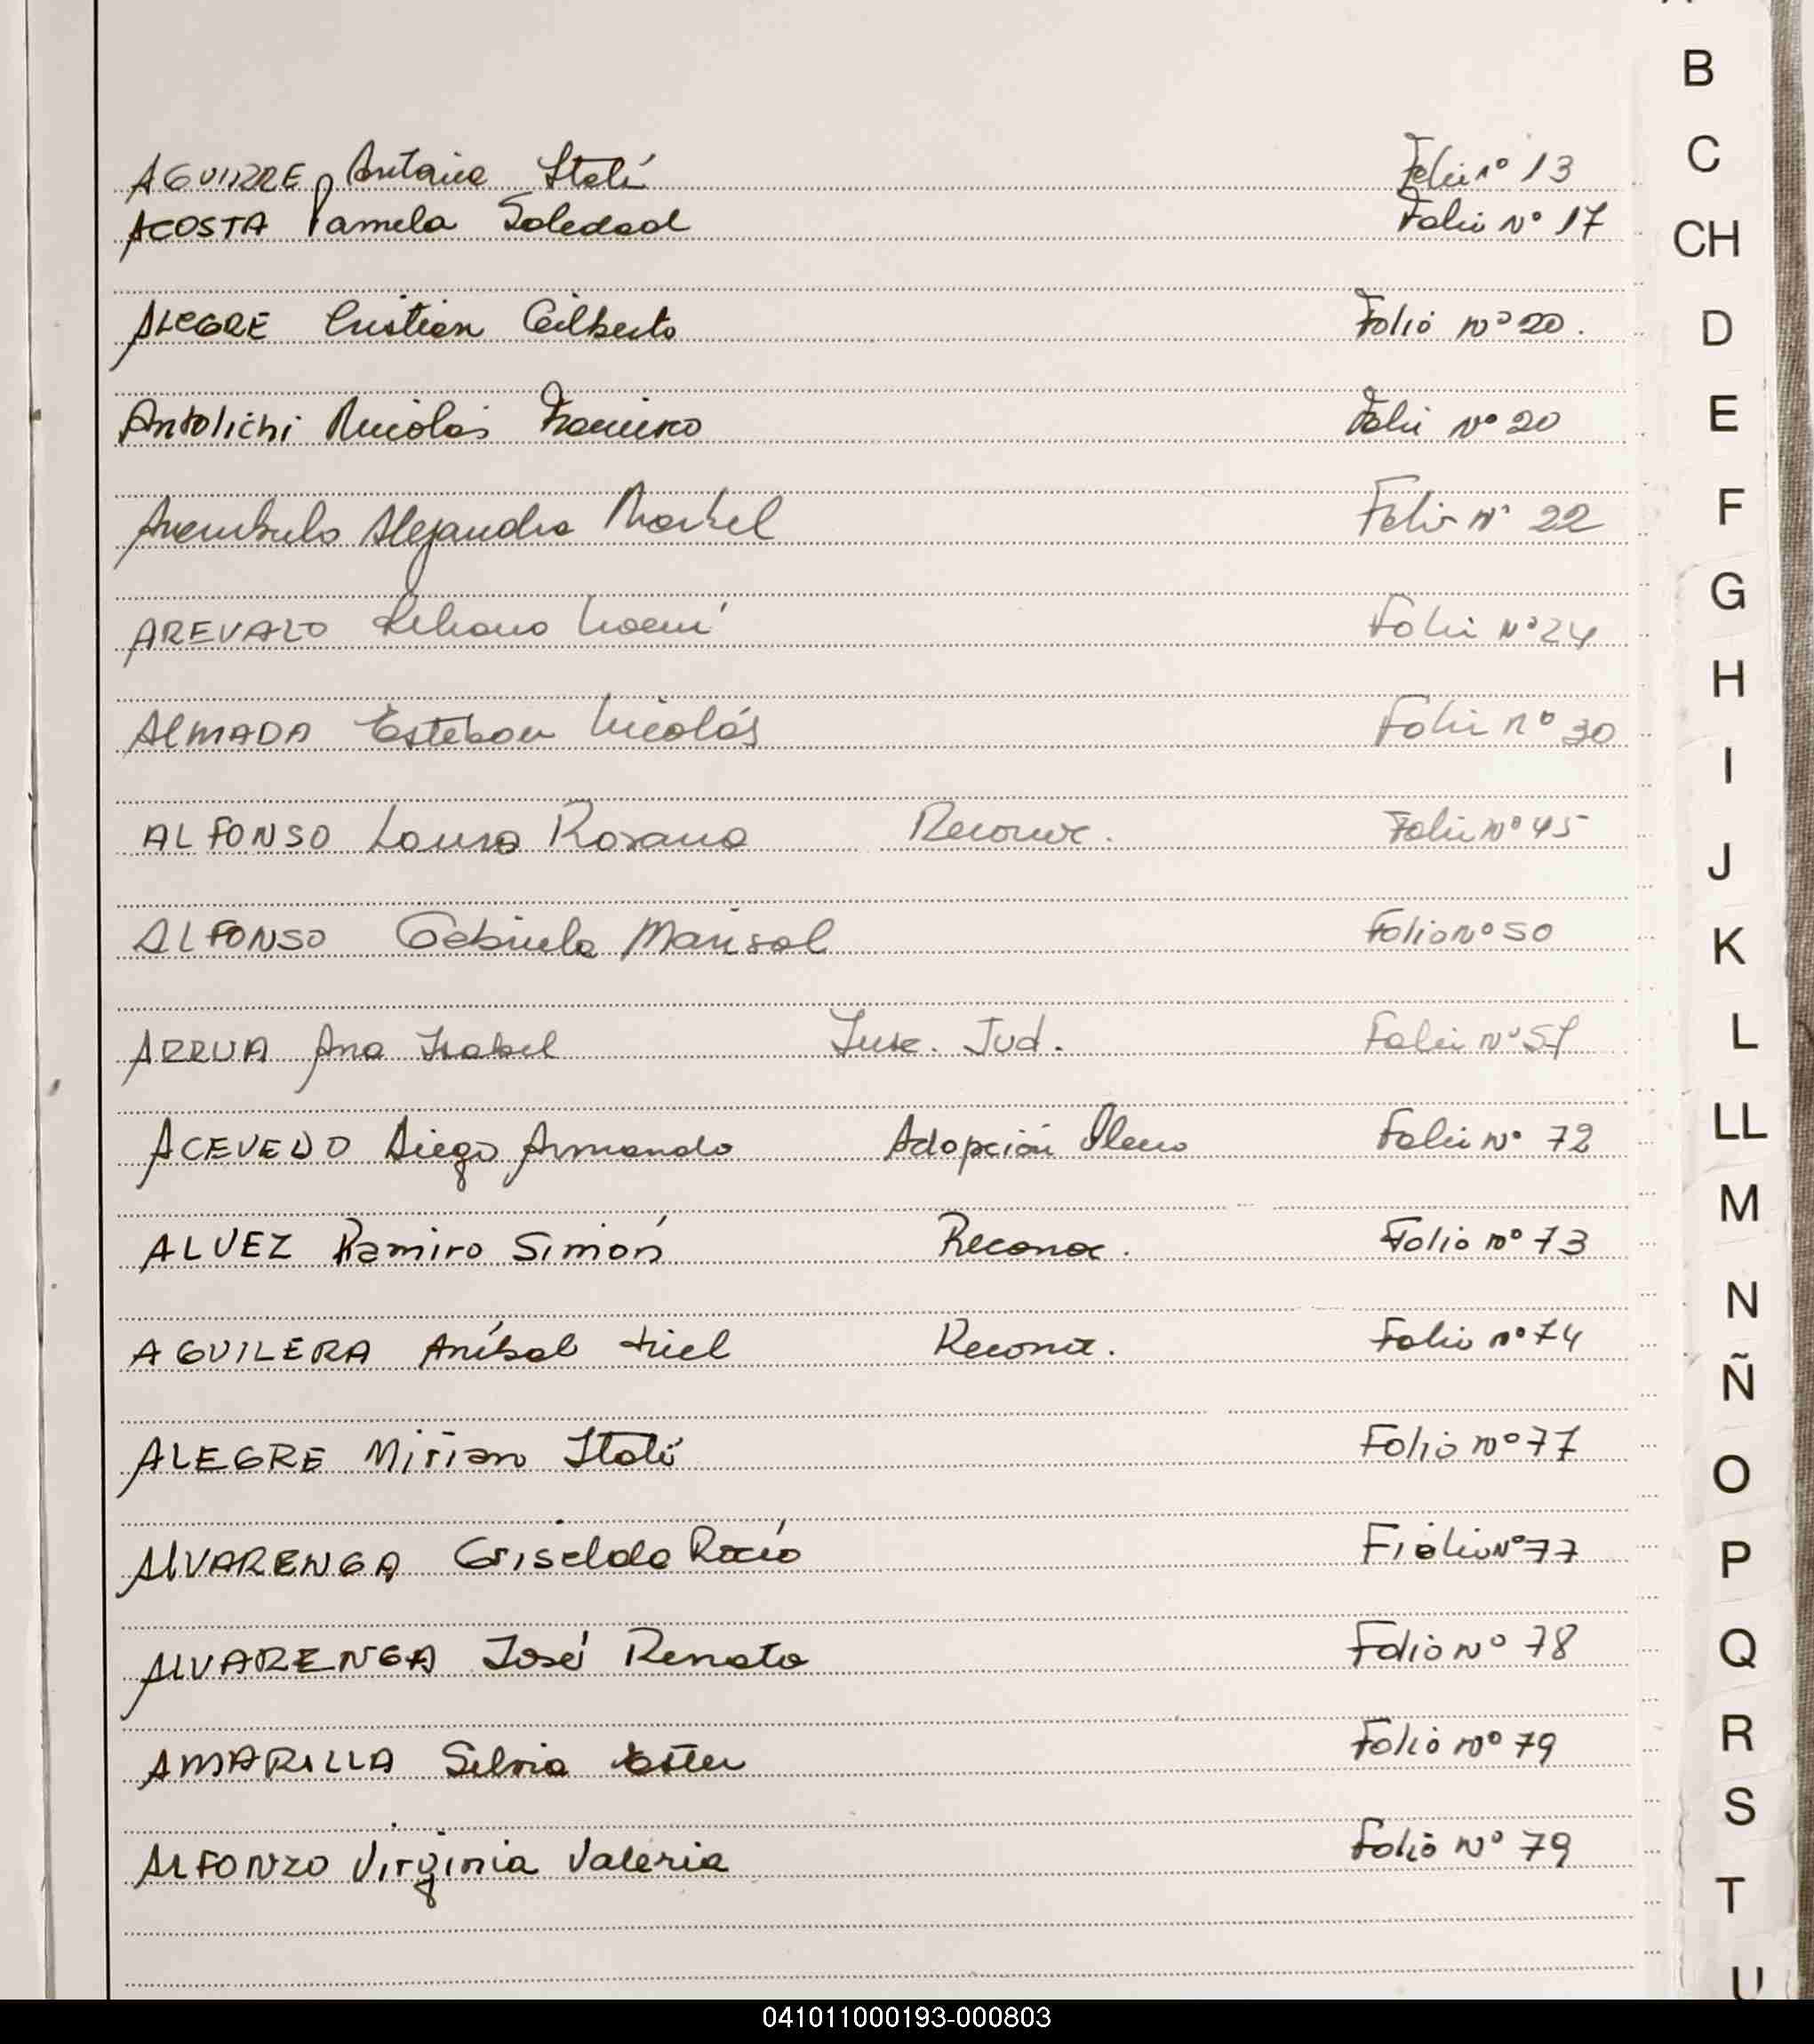 AGUIRRE Antonia Itatí Folio nº 13
ACOSTA Pamela Soledad Folio Nº 17
ALEGRE Cristian Gilberto Folio nº 20.
Antolichi Nicolás Folio Nº 20
Alejandro Folio Nº 22
AREVALO Liliana Noemí Folio Nº 24
ALMADA Esteban Nicolás Folio nº 30
ALFONSO Laura Rosana Reconoc. Folio nº 45
ALFONSO Gabriela Marisol Folio nº 50
ARRUA Ana Isabel Insc. Jud. Folio nº
ACEVEDO Diego Armando Adopción Plena Folio Nº 72
ALVEZ Ramiro Simón Reconoc. Folio nº 73
AGUILERA Aníbal Reconoc. Folio nº 74
ALEGRE Mirian Itatí Folio nº 77
ALVARENGA Griselda Rocío Fiolio Nº 77
ALVARENGA José Renato Folio Nº 78
AMARILLA Silvia Ester Folio nº 79
ALFONZO Virginia Valeria Folio Nº 79
B
C
CH
D
E
F
G
H
I
J
K
L
LL
M
N
Ñ
O
P
Q
R
S
T
U
041011000193-000803